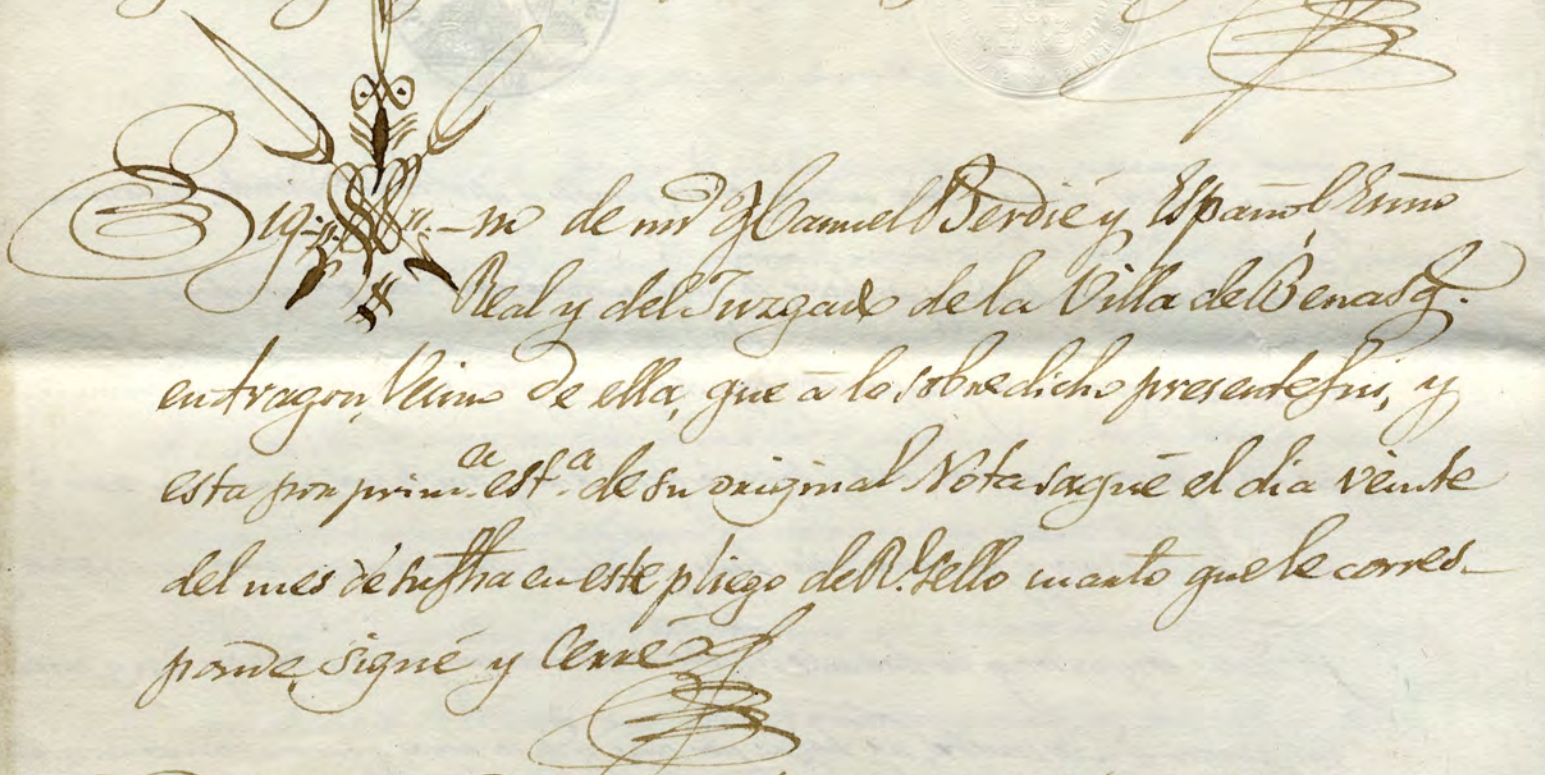 Sig-no de mi Manuel Berdié y Español Esnno
Real y del Juzgado de la Villa de Benasq.
en Aragon, Vecino de ella, que à lo sobredicho presente fui, y
esta por prim.ª est.ª de su original Nota saqué el dia veinte
del mes de su fha en este pliego del R.l sello cuarto que le corres-
ponde, signé y Cerré